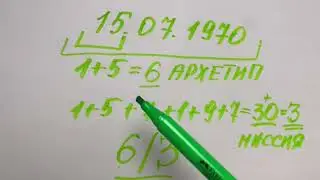 15.07.1970
1+5=6 АРХЕТИП
1+5+7+1+9+7=30=3
МИССИЯ
6/3